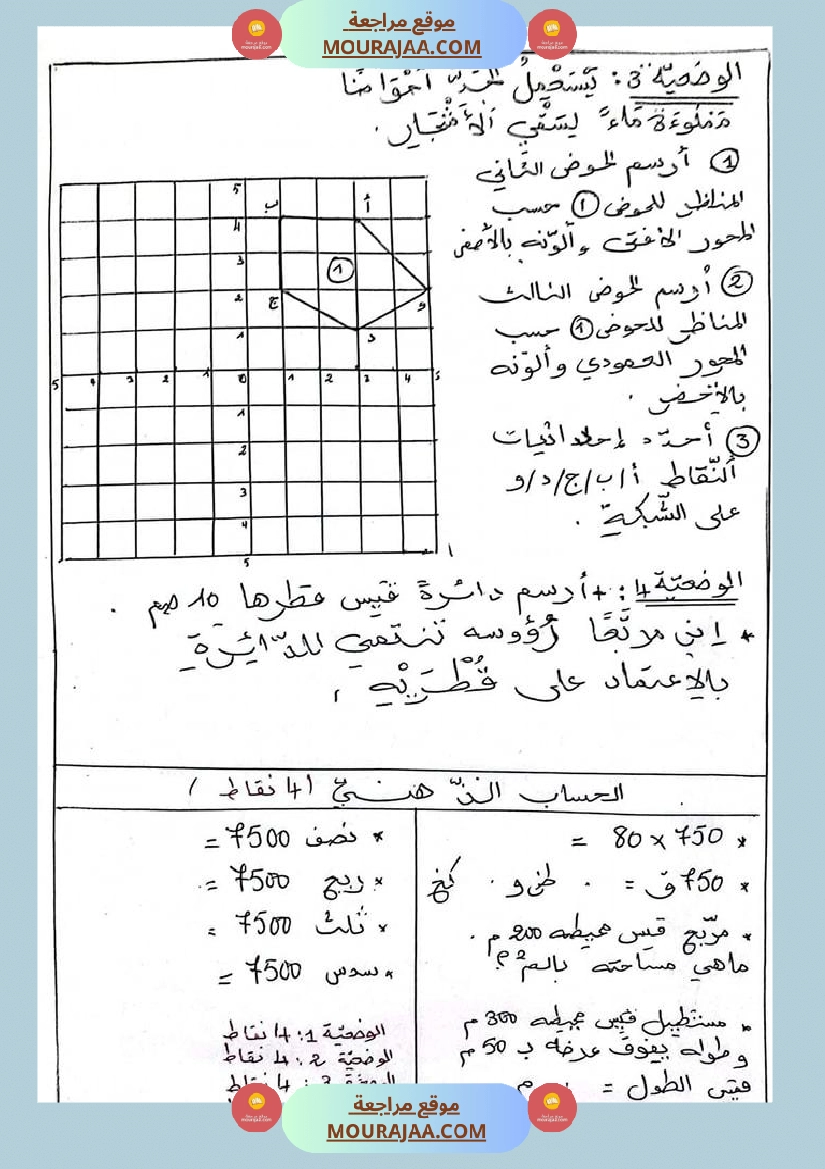 موقع مراجعة
MOURAJAA.COM
الوضعيّة 3 : يَسْتَعْمِلُ الجَدّ أَحْوَاضًا
مَمْلُوءَةً مَاءً لِسَقْيِ الْأَشْجَارِ .
① أرسم الحوض الثّاني
المناظر للحوض ① حسب
المحور الافقي وألوّنه بالأصفر
② أرسم الحوض الثالث
المناظر للحوض ① حسب
المحور العمودي وألوّنه
بالأخضر .
③ أحدّد إحداثيات
النّقاط أ/ب/ج/د/و
على الشّبكة .
5
ب أ
4
3 ①
2 ج و
1 د
5 4 3 2 1 0 1 2 3 4 5
1
2
3
4
5
الوضعيّة 4 : + أرسم دائرة قيس قطرها 10 صم .
* ابن مربّعًا رُؤوسه تنتمي للدّائِرَةِ
بالاعتماد على قُطْرَيْهِ .
الحساب الذّهنيّ (4 نقاط)
* 750 × 80 =
* 750 ق = . طن و . كغ
* مربّع قيس محيطه 200 م .
ماهي مساحته بالم² ؟
* مستطيل قيس محيطه 300 م
وطوله يفوق عرضه ب 50 م
قيس الطول = . م
* نصف 7500 =
* ربع 7500 =
* ثلث 7500 =
* سدس 7500 =
الوضعيّة 1 : 4 نقاط
الوضعيّة 2 : 4 نقاط
الوضعيّة 3 : 4 نقاط
موقع مراجعة
MOURAJAA.COM